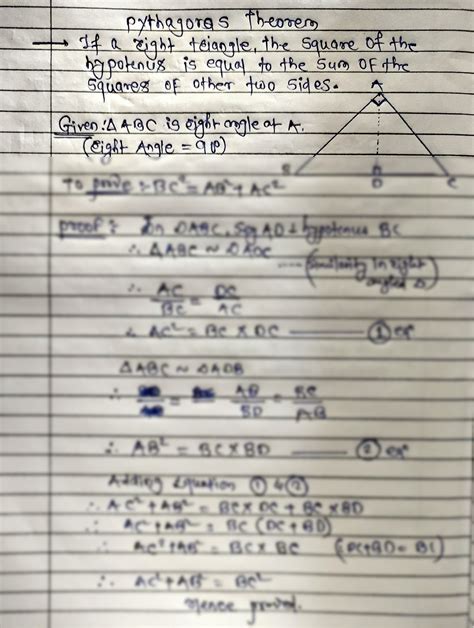 Pythagoras Theorem
→ If a right triangle, the square of the
hypotenus is equal to the sum of the
squares of other two sides.
A
Given : Δ ABC is right angle at A.
(right Angle = 90°)
B D C
To prove :- BC² = AB² + AC²
proof : In ΔABC, seg AD ⊥ hypotenus BC
∴ ΔABC ~ ΔADC
---- (similarity in right angled Δ)
∴ AC/BC = DC/AC
∴ AC² = BC × DC ——— ① eqⁿ
ΔABC ~ ΔADB
∴ AB/BD = BC/AB
∴ AB² = BC×BD ——— ② eqⁿ
Adding Equation ① & ②
∴ AC² + AB² = BC × DC + BC × BD
∴ AC² + AB² = BC (DC + BD)
∴ AC² + AB² = BC × BC (DC+BD = BC)
∴ AC² + AB² = BC²
Hence proved.